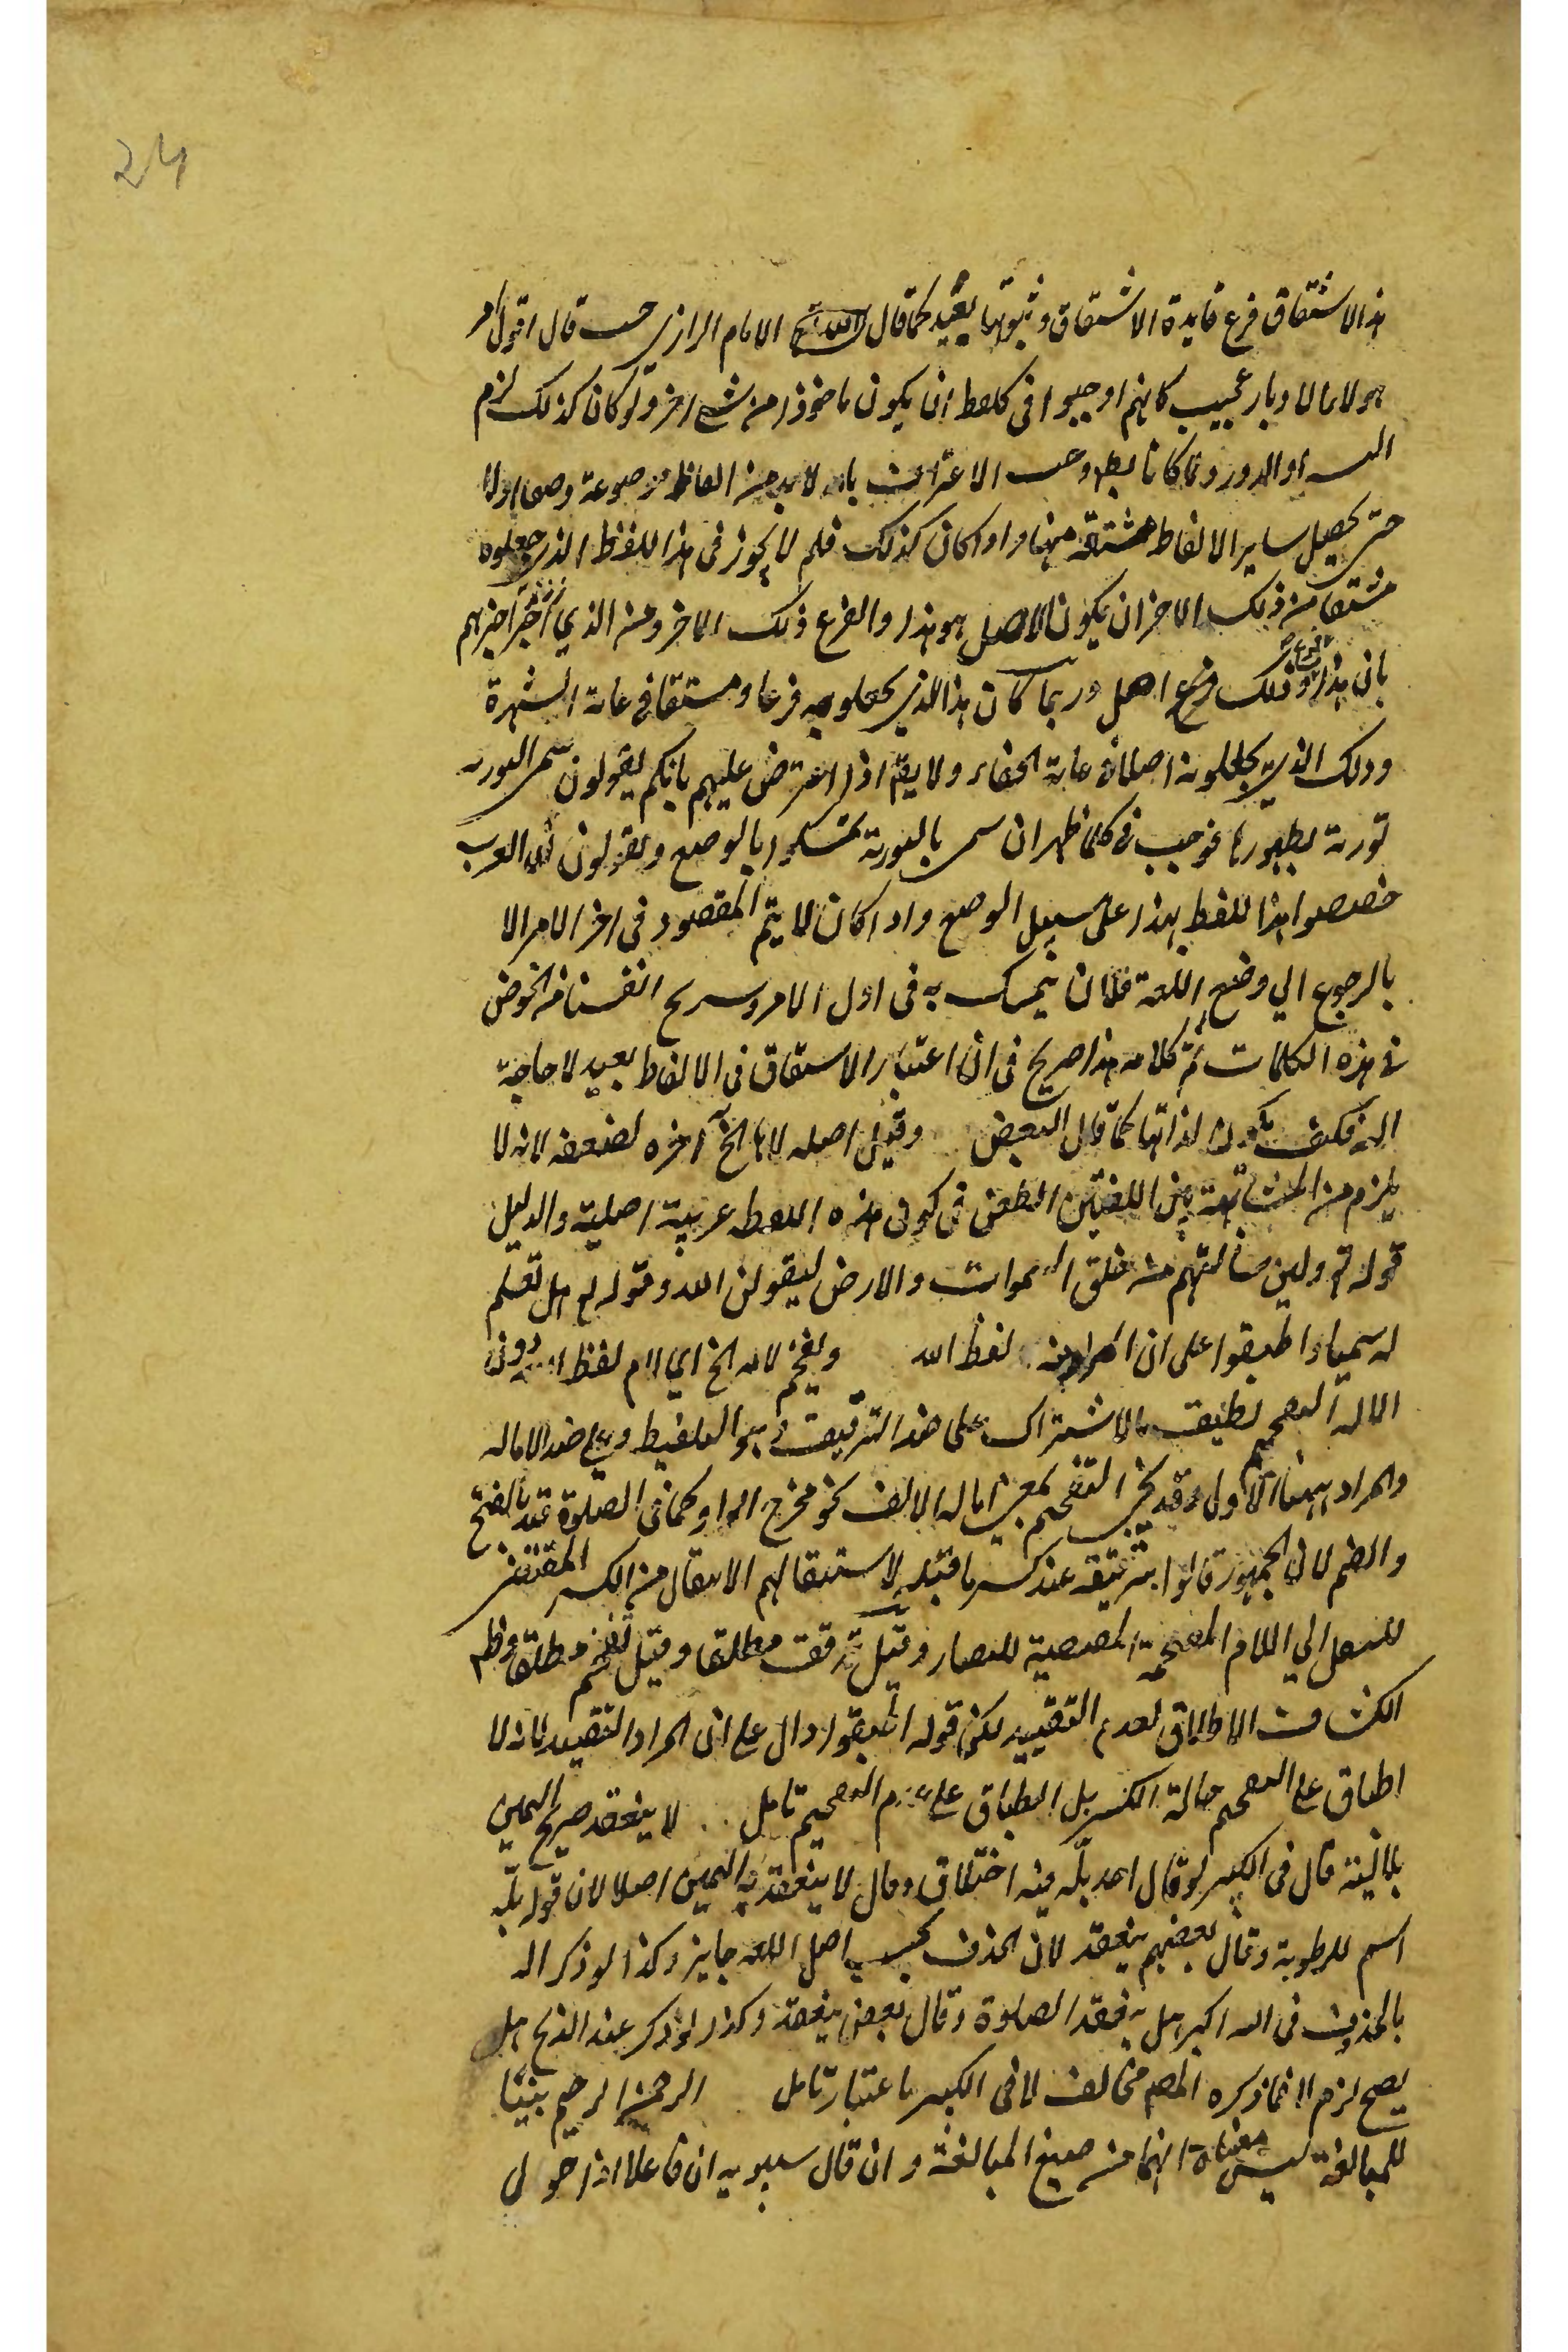 24
هذا الاشتقاق فرع فايدة الاشتقاق وثبوتها بعيد كما قال الامام الرازي حيث قال اقول امر
هولاء الادبار عجيب كانهم اوجبوا في كل لفظ ان يكون ماخوذا من شي اخر ولو كان كذلك لزم
التسـ او الدور ولما كانا بط وجب الاعتراف بانه لا بد من الفاظ موضوعة وضعا اولا
حتى يحصل ساير الالفاظ مشتقة منها واذا كان كذلك فلم لا يجوز في هذا اللفظ الذي جعلوه
مشتقا من ذلك الاخر ان يكون الاصل هو هذا والفرع ذلك الاخر ومن الذي اخبرهم
بان هذا فرع وذلك اصل وربما كان هذا الذي يجعلونه فرعا ومشتقا في غاية الشهرة
وذلك الذي يجعلونه اصلا في غاية الخفاء ولا يقـ اذا اعترض عليهم بانكم تقولون سمى التورية
تورية بظهورها فوجب في كلما ظهر ان سمى بالتورية تمسكوا بالوضع ويقولون ان العرب
خصصوا هذا اللفظ بهذا على سبيل الوضع واذا كان لا يتم المقصود في اخر الامر الا
بالرجوع الي وضع اللغة فلان يتمسك به في اول الامر وسريح انفسنا من الخوض
في هذه الكلمات تم كلامه هذا صريح في ان اعتبار الاشتقاق في الالفاظ بعيد لا حاجة
اليه فكيف يكون لذاتها كما قال البعض وقيل اصله لاها الخ آخره لضعفه لانه لا
يلزم من المشابهة بين اللغتين الطعن في كون هذه اللفظه عربية اصلية والدليل
قوله تع ولين سالتهم من خلق السموات والارض ليقولن الله وقوله تع هل تعلم
له سميا واطبقوا على ان المراد منه لفظ الله وتفخيم لامه الخ اي لام لفظ الله دون
الاله التفخيم يطلق بالاشتراك على ضد الترقيق وهو التغليظ وعلى ضد الاماله
والمراد ههنا الاول وقد يجي التفخيم بمعنى اماله الالف نحو مخرج الواو كما في الصلوة عند الفتح
والضم لان الجمهور قالوا بترقيقه عند كسر ما قبله لاستثقالهم الانتقال من الكسر المقتضى
للتسفل الي اللام المفخمة المقتضية للتصعد وقيل ترقق مطلقا وقيل تفخم مطلقا وظـ
الكشاف الاطلاق لعدم التقييد لكن قوله اطبقوا دال على ان المراد التقييد لانه لا
اطباق على التفخيم حالة الكسر بل اطباق على عدم التفخيم تامل لا ينعقد صريح اليمين
بلا نية قال في الكبير لو قال احد بلّه فيه اختلاف وقال لا ينعقد به اليمين اصلا لان قوله بلّه
اسم للرطوبة وقال بعضهم ينعقد لان الحذف بحسب اصل اللغه جايز وكذا لو ذكر الله
بالحذف في الله اكبر هل به ينعقد الصلوة وقال بعض ينعقد وكذا لو ذكر عند الذبح هل
يصح لزم لا فما ذكره المصـ مخالف لما في الكبير باعتبار تامل الرحمن الرحيم بنيتا
للمبالغة ليس معناه انهما من صيغ المبالغة وان قال سيبويه ان فاعلا اذا حول